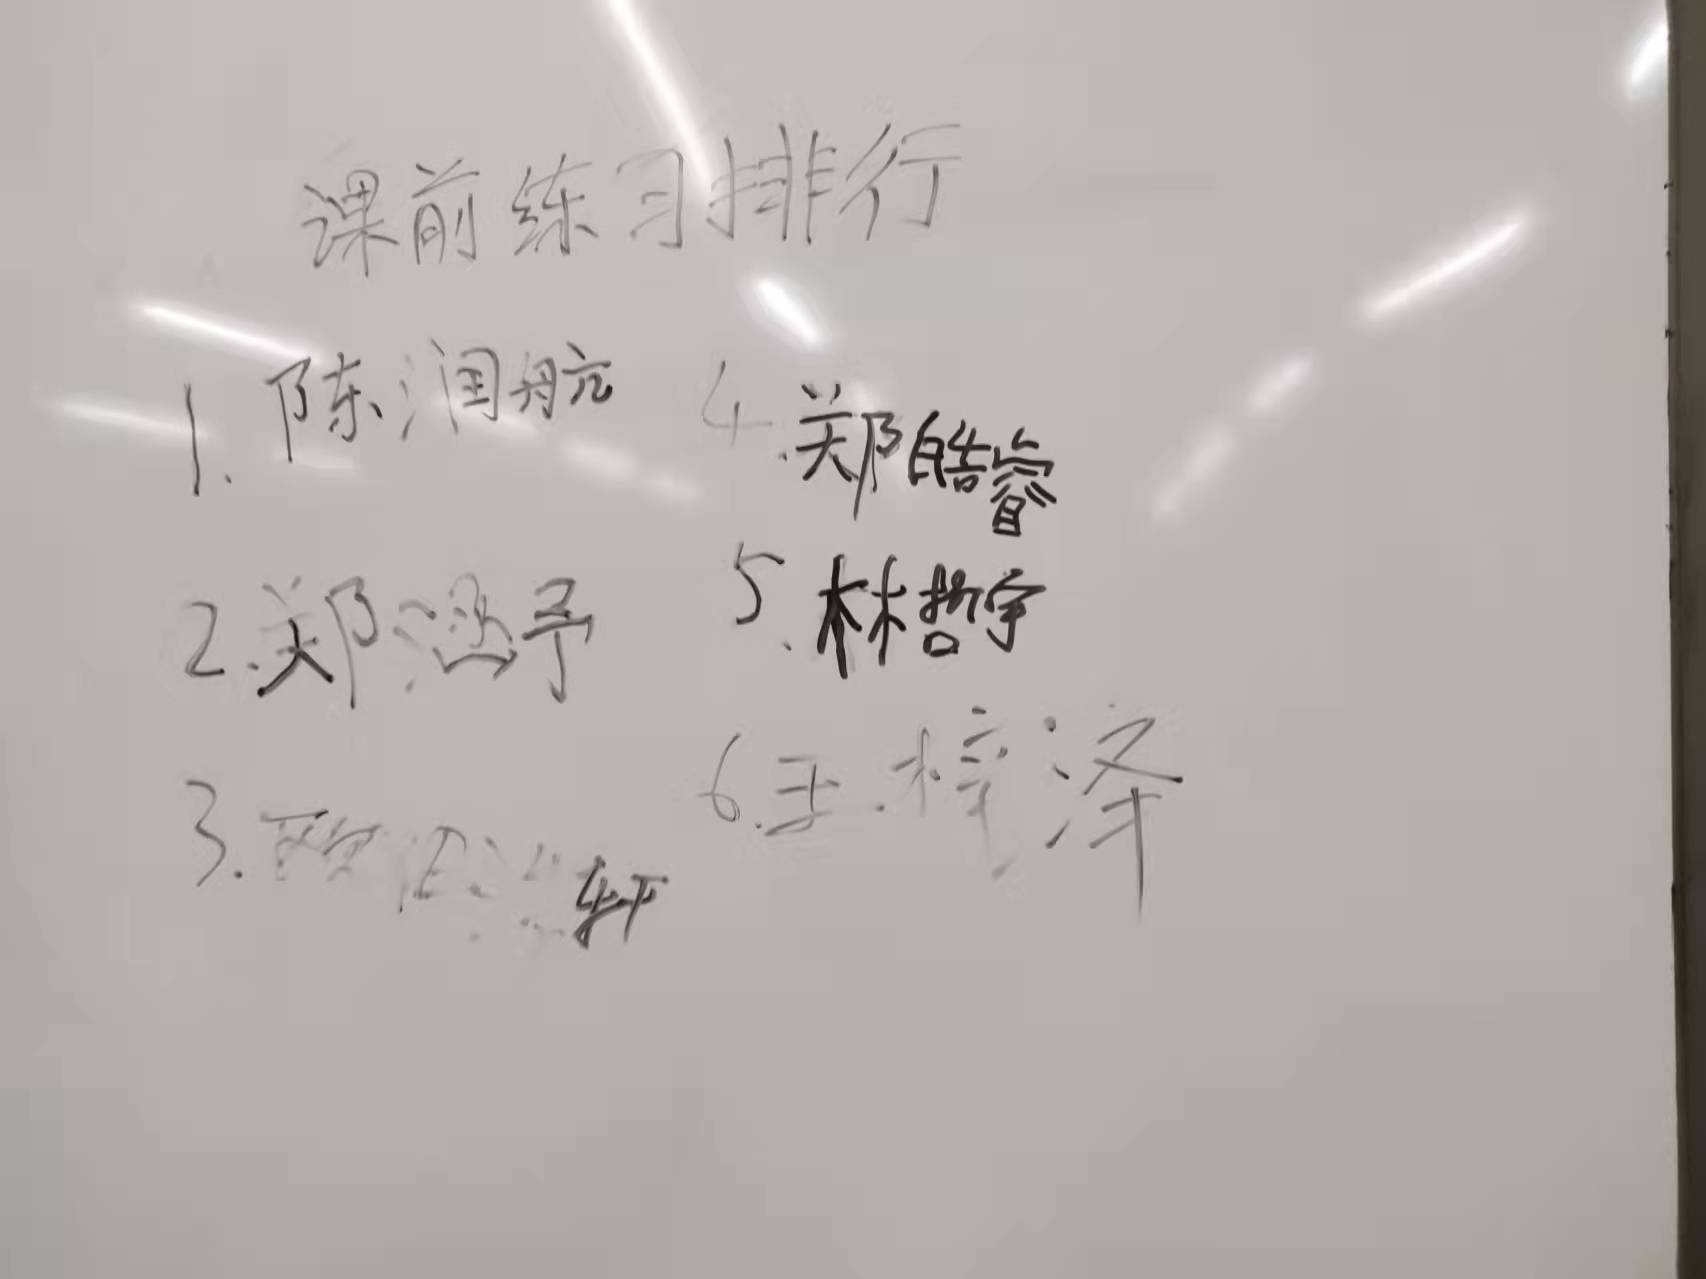 课前练习排行
1. 陈润航
2. 郑涵予
3. 欧阳 轩
4. 郑皓睿
5. 林哲宇
6. 王梓泽